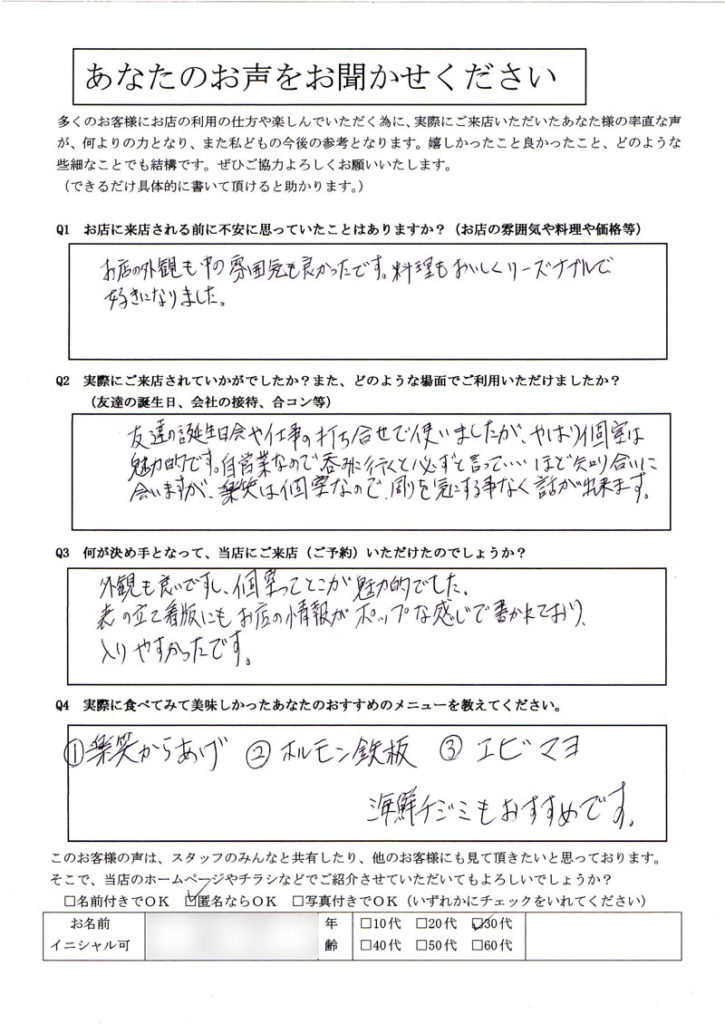 あなたのお声をお聞かせください
多くのお客様にお店の利用の仕方や楽しんでいただく為に、実際にご来店いただいたあなた様の率直な声
が、何よりの力となり、また私どもの今後の参考となります。嬉しかったこと良かったこと、どのような
些細なことでも結構です。ぜひご協力よろしくお願いいたします。
（できるだけ具体的に書いて頂けると助かります。）
Q1 お店に来店される前に不安に思っていたことはありますか？（お店の雰囲気や料理や価格等）
お店の外観も中の雰囲気も良かったです。料理もおいしくリーズナブルで
好きになりました。
Q2 実際にご来店されていかがでしたか？また、どのような場面でご利用いただけましたか？
（友達の誕生日、会社の接待、合コン等）
友達の誕生日会や仕事の打ち合せで使いましたが、やはり個室は
魅力的です。自営業なので呑みに行くと必ずと言っていいほど知り合いに
会いますが、楽笑は個室なので、周りを気にする事なく話が出来ます。
Q3 何が決め手となって、当店にご来店（ご予約）いただけたのでしょうか？
外観も良いですし、個室ってとこが魅力的でした。
表の立て看版にもお店の情報がポップな感じで書かれており、
入りやすかったです。
Q4 実際に食べてみて美味しかったあなたのおすすめのメニューを教えてください。
①楽笑からあげ ②ホルモン鉄板 ③エビマヨ
海鮮チヂミもおすすめです。
このお客様の声は、スタッフのみんなと共有したり、他のお客様にも見て頂きたいと思っております。
そこで、当店のホームページやチラシなどでご紹介させていただいてもよろしいでしょうか？
□名前付きでOK ☑匿名ならOK □写真付きでOK（いずれかにチェックをいれてください）
お名前 年 □10代 □20代 ☑30代
イニシャル可 齢 □40代 □50代 □60代